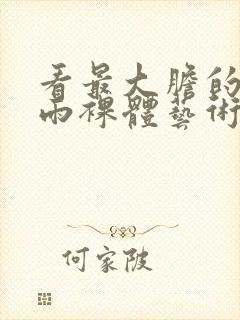 看最大膽的
雨裸體藝術
何家陂